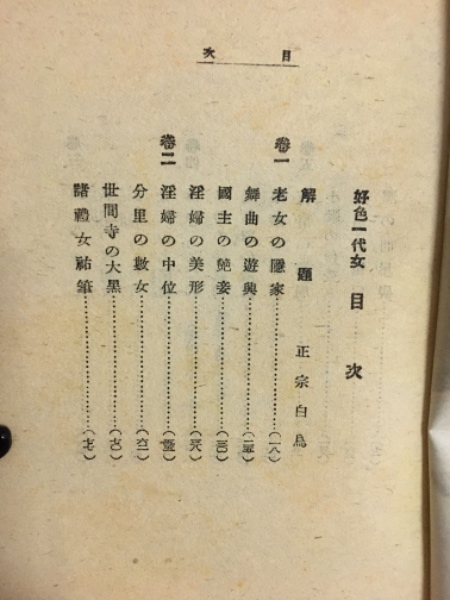 目次
好色一代女 目次
解題 正宗白鳥
卷一
老女の隱家………(一八)
舞曲の遊興………(二五)
國主の艷妾………(三〇)
淫婦の美形………(三八)
卷二
淫婦の中位………
分里の數女………
世間寺の大黑………
諸禮女祐筆………